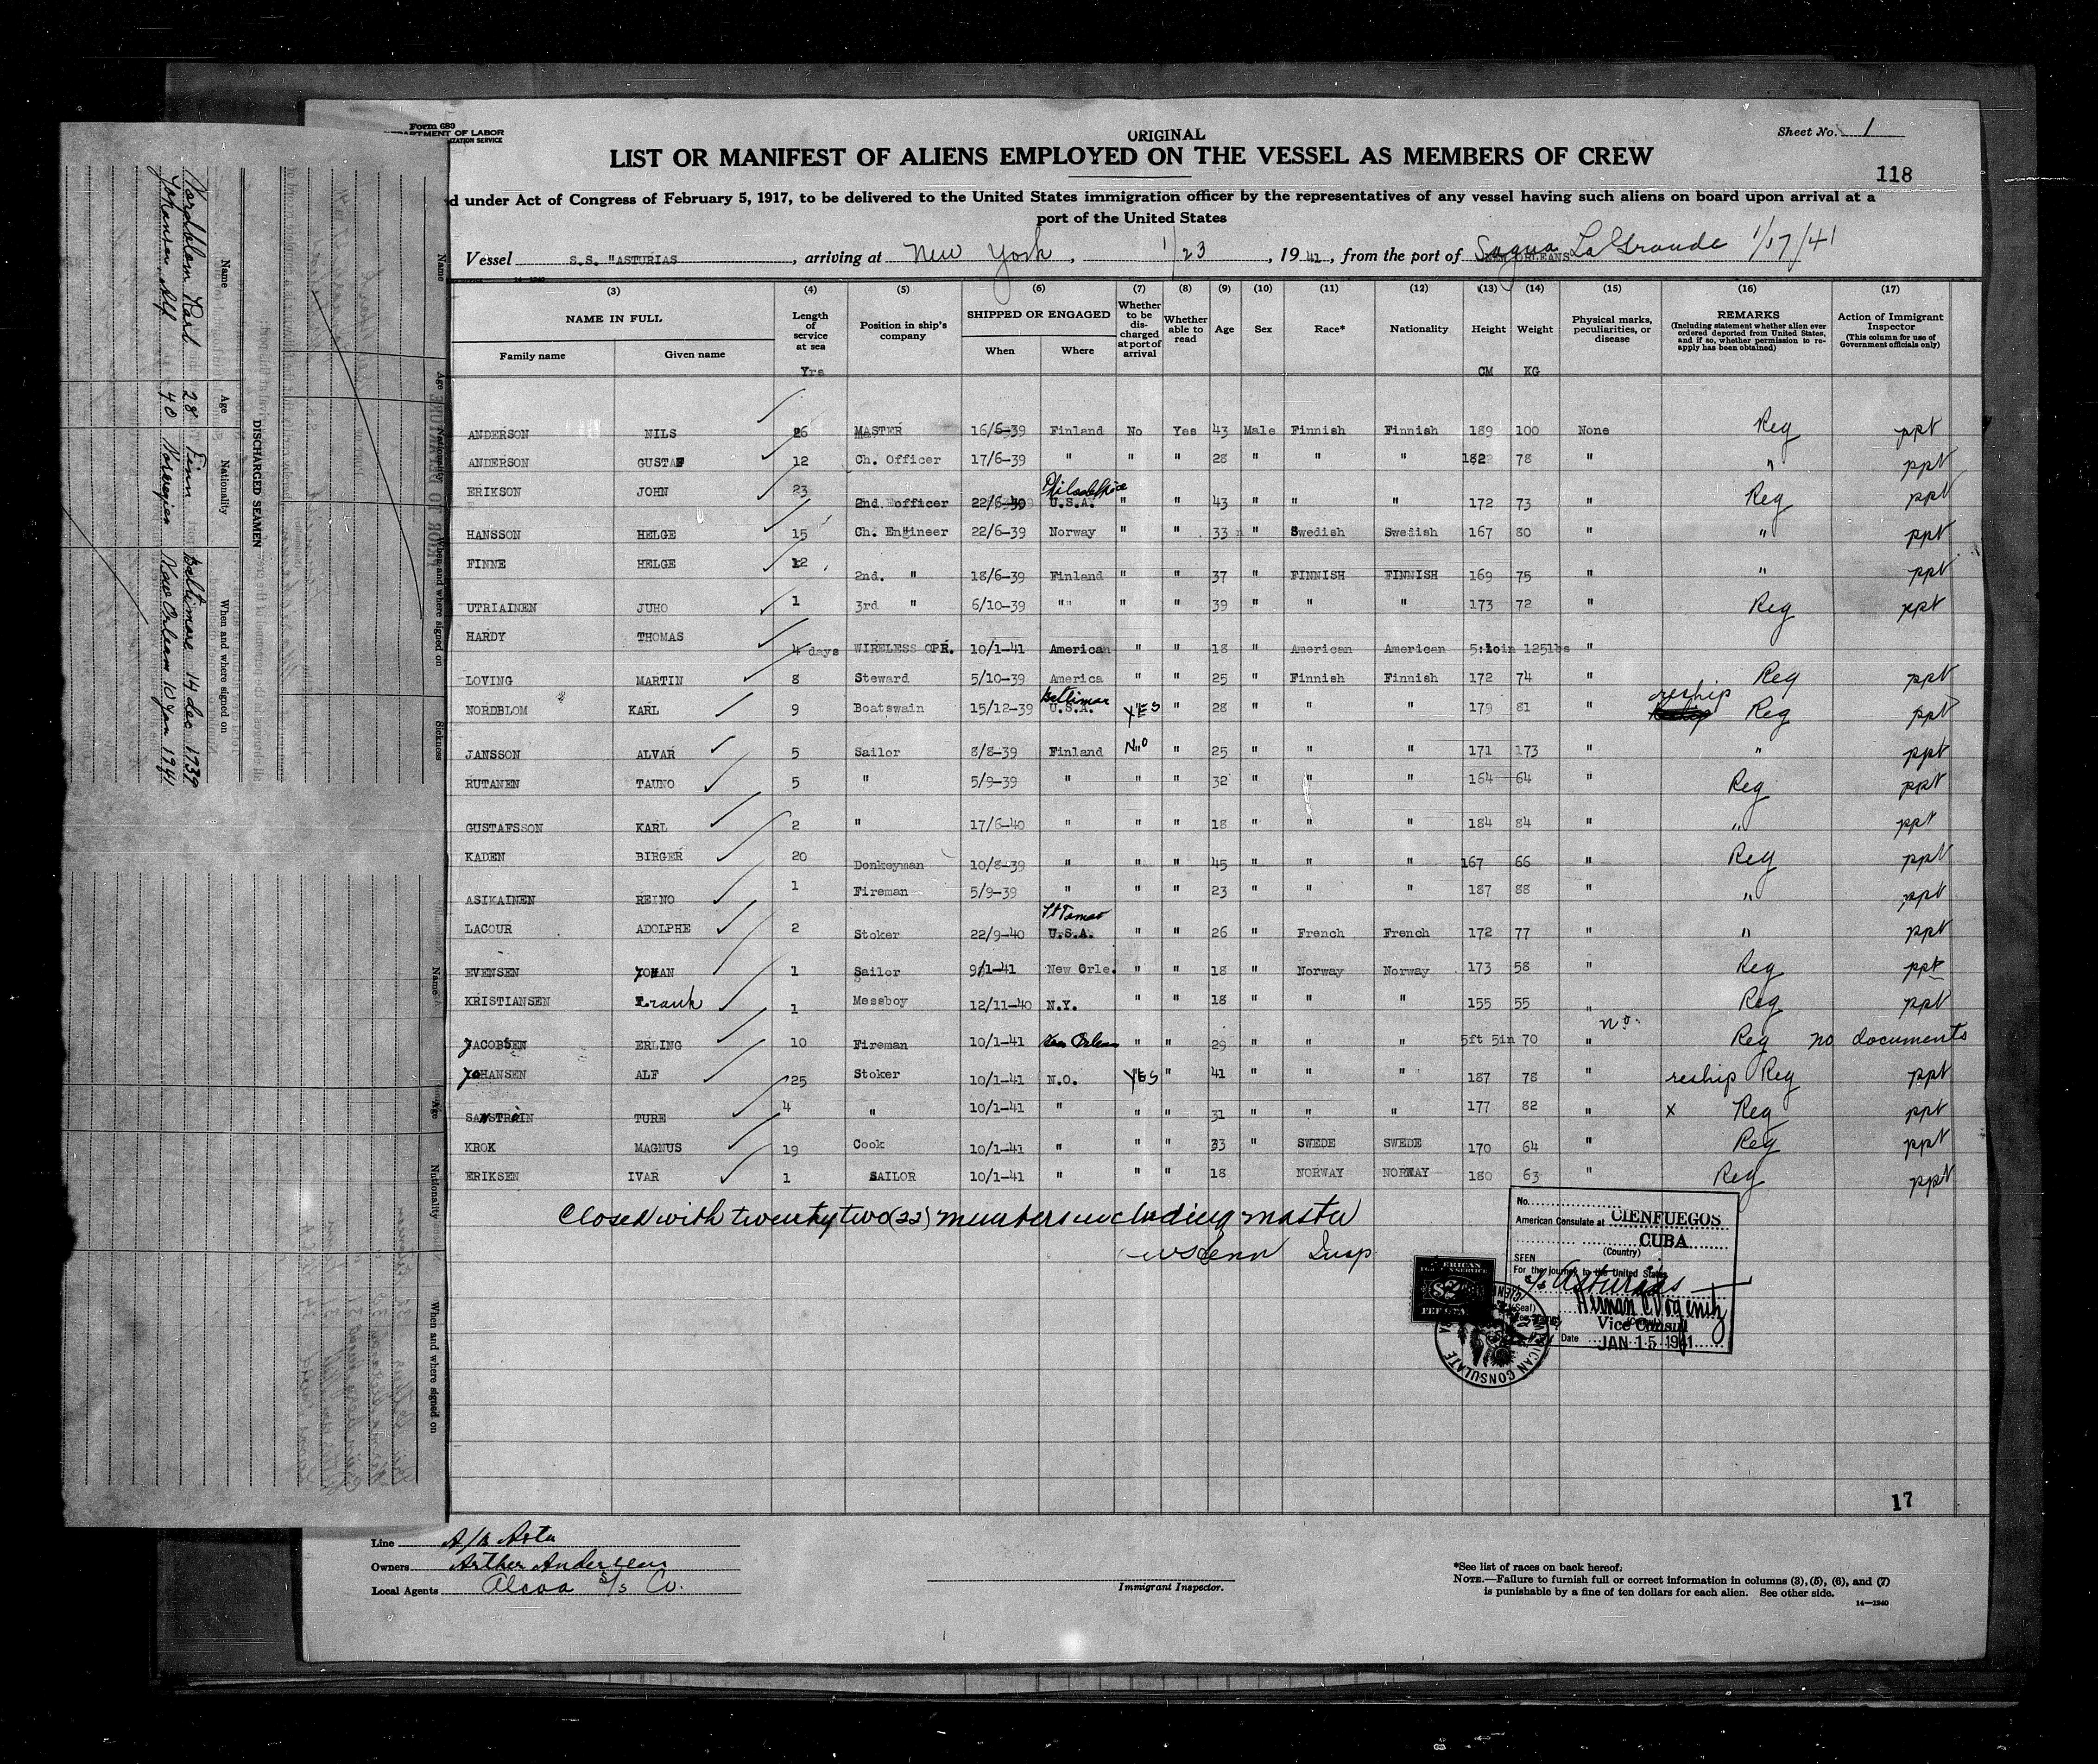 Form 680
DEPARTMENT OF LABOR
ORIGINAL
Sheet No. 1
LIST OR MANIFEST OF ALIENS EMPLOYED ON THE VESSEL AS MEMBERS OF CREW
118
d under Act of Congress of February 5, 1917, to be delivered to the United States immigration officer by the representatives of any vessel having such aliens on board upon arrival at a
port of the United States
Vessel S.S. "ASTURIAS, arriving at New York, 1/23, 1941, from the port of Sagua La Grande 1/17/41
(3) (4) (5) (6) (7) (8) (9) (10) (11) (12) (13) (14) (15) (16) (17)
NAME IN FULL
Family name Given name
Length of service at sea
Yrs
Position in ship's company
SHIPPED OR ENGAGED
When Where
Whether to be discharged at port of arrival
Whether able to read
Age
Sex
Race*
Nationality
Height
CM
Weight
KG
Physical marks, peculiarities, or disease
REMARKS
(Including statement whether alien ever ordered deported from United States, and if so, whether permission to reapply has been obtained)
Action of Immigrant Inspector
(This column for use of Government officials only)
ANDERSON NILS 26 MASTER 16/6-39 Finland No Yes 43 Male Finnish Finnish 189 100 None Reg ppt
ANDERSON GUSTAF 12 Ch. Officer 17/6-39 " " " 28 " " " 182 78 " " ppt
ERIKSON JOHN 23 2nd. officer 22/6-39 Philadelphia U.S.A. " " 43 " " " 172 73 " Reg ppt
HANSSON HELGE 15 Ch. Engineer 22/6-39 Norway " " 33 " Swedish Swedish 167 80 " " ppt
FINNE HELGE 12 2nd. " 18/6-39 Finland " " 37 " FINNISH FINNISH 169 75 " " ppt
UTRIAINEN JUHO 1 3rd " 6/10-39 "" " " 39 " " " 173 72 " Reg ppt
HARDY THOMAS 4 days WIRELESS OPR. 10/1-41 American " " 18 " American American 5:10in 125lbs "
LOVING MARTIN 8 Steward 5/10-39 America " " 25 " Finnish Finnish 172 74 " Reg ppt
NORDBLOM KARL 9 Boatswain 15/12-39 Baltimar U.S.A. YES " 28 " " " 179 81 " reship Reg ppt
JANSSON ALVAR 5 Sailor 8/8-39 Finland No " 25 " " " 171 173 " " ppt
RUTANEN TAUNO 5 " 5/9-39 " " " 32 " " " 164 64 " Reg ppt
GUSTAFSSON KARL 2 " 17/6-40 " " " 18 " " " 184 84 " " ppt
KADEN BIRGER 20 Donkeyman 10/8-39 " " " 45 " " " 167 66 " Reg ppt
ASIKAINEN REINO 1 Fireman 5/9-39 " " " 23 " " " 187 88 " " ppt
LACOUR ADOLPHE 2 Stoker 22/9-40 U.S.A. " " 26 " French French 172 77 " " ppt
EVENSEN JOHAN 1 Sailor 9/1-41 New Orle. " " 18 " Norway Norway 173 58 " Reg ppt
KRISTIANSEN Frank 1 Messboy 12/11-40 N.Y. " " 18 " " " 155 55 " Reg ppt
JACOBSEN ERLING 10 Fireman 10/1-41 New Orleans " " 29 " " " 5ft 5in 70 " no. Reg no documents
JOHANSEN ALF 25 Stoker 10/1-41 N.O. YES " 41 " " " 187 78 " reship Reg ppt
TURE 4 " 10/1-41 " " " 31 " " " 177 82 " x Reg ppt
KROK MAGNUS 19 Cook 10/1-41 " " " 33 " SWEDE SWEDE 170 64 " Reg ppt
ERIKSEN IVAR 1 SAILOR 10/1-41 " " " 18 NORWAY NORWAY 180 63 " Reg ppt
Closed with twenty two (22) members including master
Insp
No.
American Consulate at CIENFUEGOS
CUBA
(Country)
SEEN
For the journey to the United States
S/S Asturias
(Seal)
Vice Consul
Date JAN 15 1941
AMERICAN CONSULATE
17
Line A/B Asta
Owners Arthur Andersson
Local Agents Alcoa S/S Co.
Immigrant Inspector.
*See list of races on back hereof.
NOTE.—Failure to furnish full or correct information in columns (3), (5), (6), and (7)
is punishable by a fine of ten dollars for each alien. See other side.
14—1240
DISCHARGED SEAMEN
Name Age Nationality When and where signed on
Nordblom Karl 28 Finn Baltimore 14 dec 1939
Johansen Alf 40 Norwegian New Orleans 10 Jan 1941
Name Age Nationality When and where signed on Sickness
PRIOR TO DEPARTURE
Name Age Nationality When and where signed on